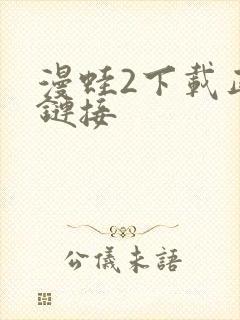 漫蛙2下載
鏈接
公儀未語